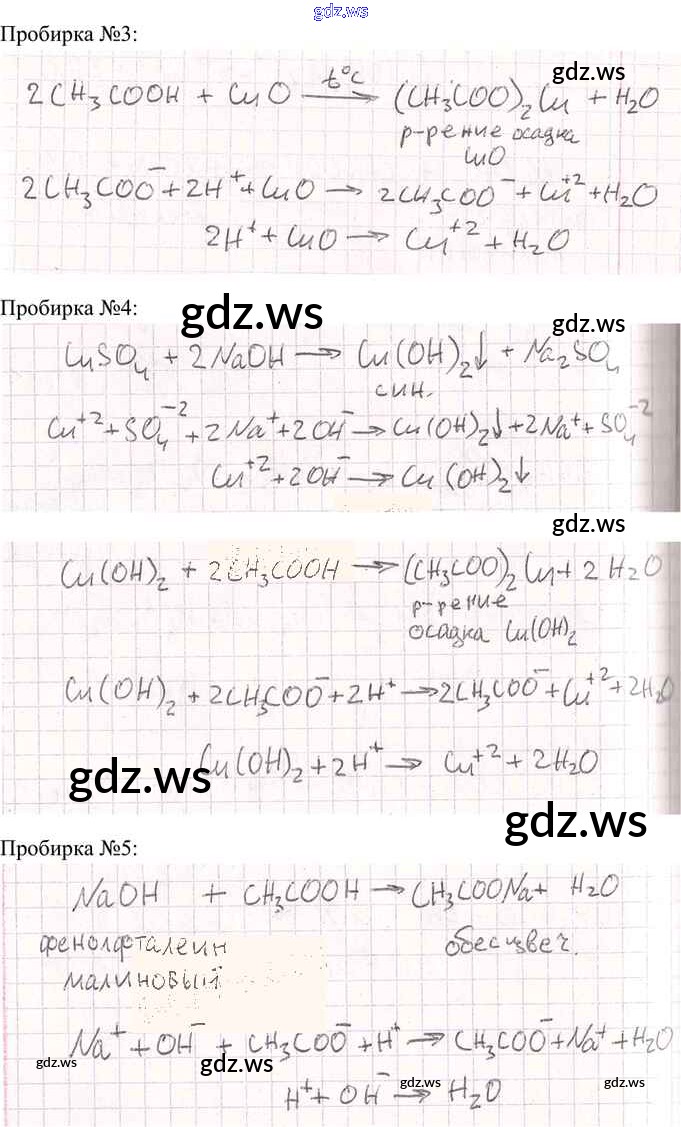 gdz.ws
Пробирка №3:
gdz.ws
2CH₃COOH + CuO —t°C→ (CH₃COO)₂Cu + H₂O
р-рение осадка
CuO
2CH₃COO⁻+2H⁺+CuO → 2CH₃COO⁻+Cu⁺²+H₂O
2H⁺+CuO → Cu⁺²+H₂O
Пробирка №4:
gdz.ws
gdz.ws
CuSO₄ + 2NaOH → Cu(OH)₂↓ + Na₂SO₄
син.
Cu⁺²+SO₄⁻²+2Na⁺+2OH⁻→Cu(OH)₂↓+2Na⁺+SO₄⁻²
Cu⁺²+2OH⁻ → Cu(OH)₂↓
gdz.ws
Cu(OH)₂ + 2CH₃COOH →(CH₃COO)₂Cu+2H₂O
р-рение
осадка Cu(OH)₂
Cu(OH)₂+2CH₃COO⁻+2H⁺→2CH₃COO⁻+Cu⁺²+2H₂O
gdz.ws
Cu(OH)₂+2H⁺ → Cu⁺²+2H₂O
gdz.ws
Пробирка №5:
NaOH + CH₃COOH → CH₃COONa+ H₂O
фенолфталеин обесцвеч.
малиновый
Na⁺+OH⁻ + CH₃COO⁻+H⁺ → CH₃COO⁻+Na⁺+H₂O
gdz.ws gdz.ws
H⁺+OH⁻ → H₂O
gdz.ws gdz.ws